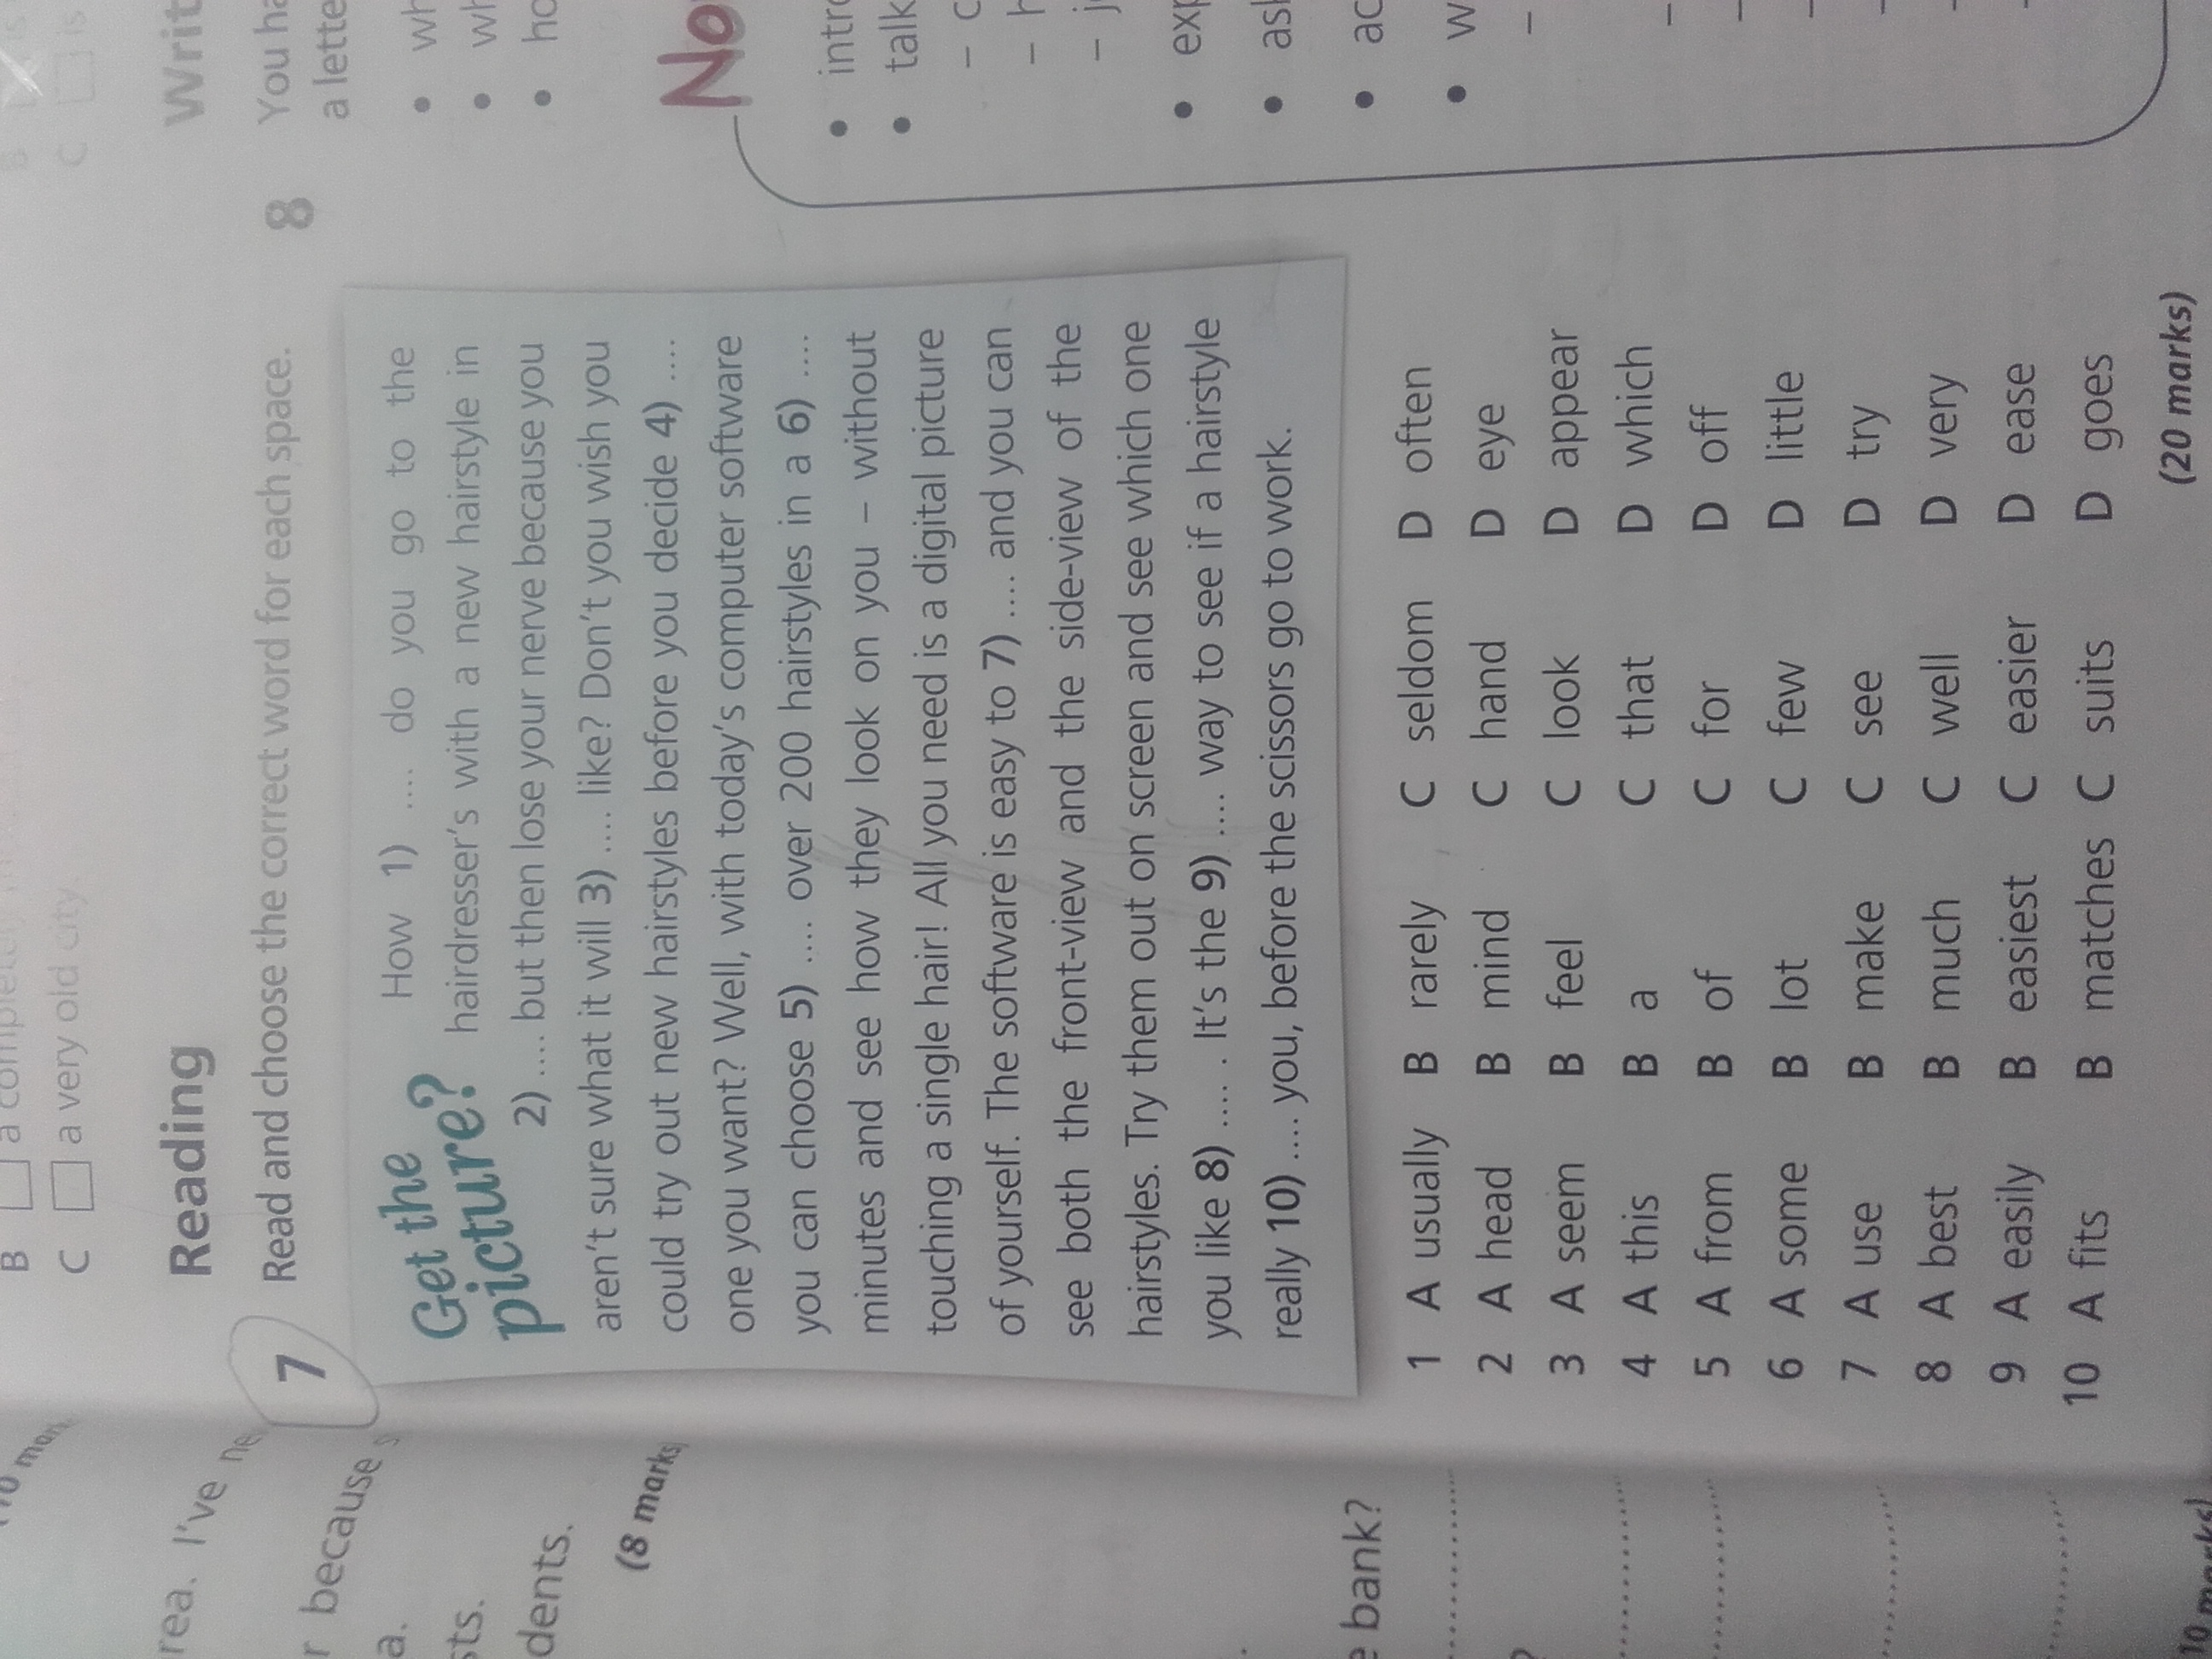 B a completely
C a very old city.
Reading
7 Read and choose the correct word for each space.
Get the
picture?
How 1) .... do you go to the
hairdresser's with a new hairstyle in
2) .... but then lose your nerve because you
aren't sure what it will 3) .... like? Don't you wish you
could try out new hairstyles before you decide 4) ....
one you want? Well, with today's computer software
you can choose 5) .... over 200 hairstyles in a 6) ....
minutes and see how they look on you – without
touching a single hair! All you need is a digital picture
of yourself. The software is easy to 7) .... and you can
see both the front-view and the side-view of the
hairstyles. Try them out on screen and see which one
you like 8) ..... . It's the 9) .... way to see if a hairstyle
really 10) .... you, before the scissors go to work.
1 A usually B rarely C seldom D often
2 A head B mind C hand D eye
3 A seem B feel C look D appear
4 A this B a C that D which
5 A from B of C for D off
6 A some B lot C few D little
7 A use B make C see D try
8 A best B much C well D very
9 A easily B easiest C easier D ease
10 A fits B matches C suits D goes
(20 marks)
rea. I've
r because
a.
sts.
dents.
(8 marks)
e bank?
10 marks)
C is
Writ
8 You ha
a lette
• wh
• wh
• ho
No
• intro
• talk
– c
– h
– j
• exp
• ask
• ac
• w